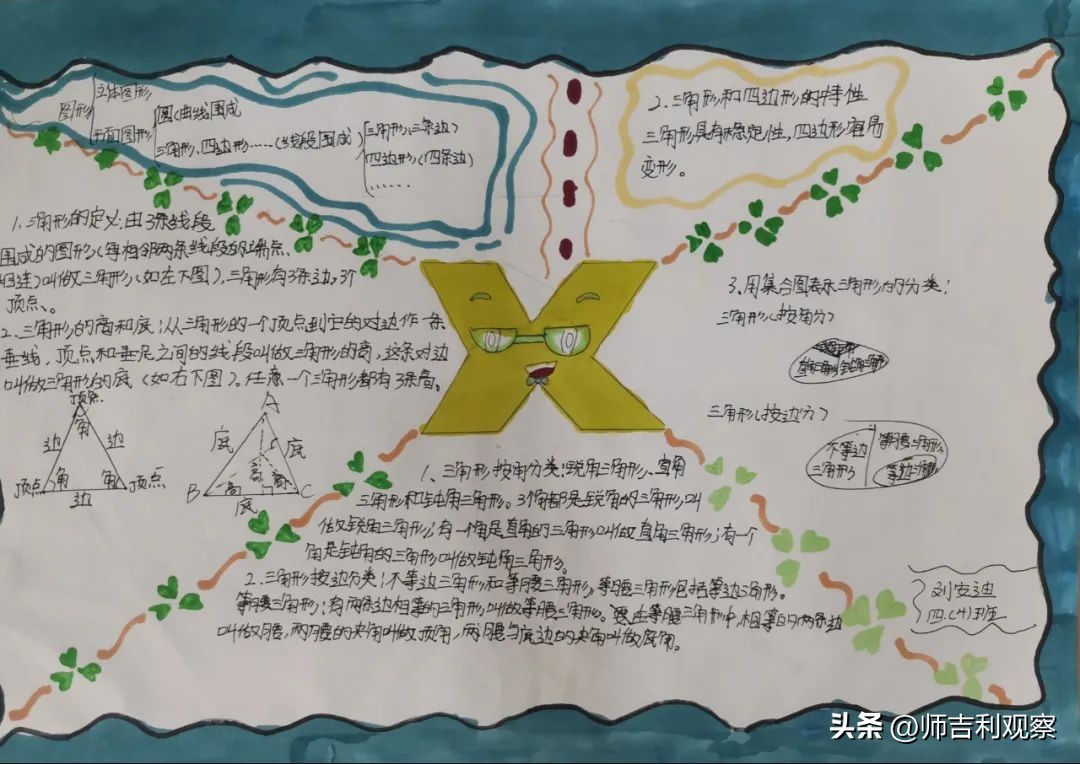 图形
立体图形
平面图形
圆(曲线围成
三角形、四边形……(线段围成)
三角形(三条边)
四边形(四条边)
……
2.三角形和四边形的特性
三角形具有稳定性,四边形容易
变形。
1.三角形的定义:由3条线段
围成的图形(每相邻两条线段的端点
相连)叫做三角形(如左下图),三角形有3条边,3个
顶点、。
2.三角形的高和底:从三角形的一个顶点到它的对边作一条
垂线,顶点和垂足之间的线段叫做三角形的高,这条对边
叫做三角形的底(如右下图)。任意一个三角形都有3条高。
顶点
角
边 边
顶点 角 角 顶点
边
A
底 底
高
高 高
B C
底
3.用集合图表示三角形的分类:
三角形(按角分)
直角三角形 钝角三角形
三角形(按边分)
不等边
三角形
等腰三角形
等边三角形
1、三角形按角分类:锐角三角形、直角
三角形和钝角三角形。3个角都是锐角的三角形,叫
做锐角三角形;有一个角是直角的三角形叫做直角三角形;有一个
角是钝角的三角形叫做钝角三角形。
2.三角形按边分类:不等边三角形和等腰三角形,等腰三角形包括等边三角形。
等腰三角形:有两条边相等的三角形叫做等腰三角形。在等腰三角形中,相等的两条边
叫做腰,两腰的夹角叫做顶角,两腰与底边的夹角叫做底角。
刘安迪
四.(4)班
头条 @师吉利观察